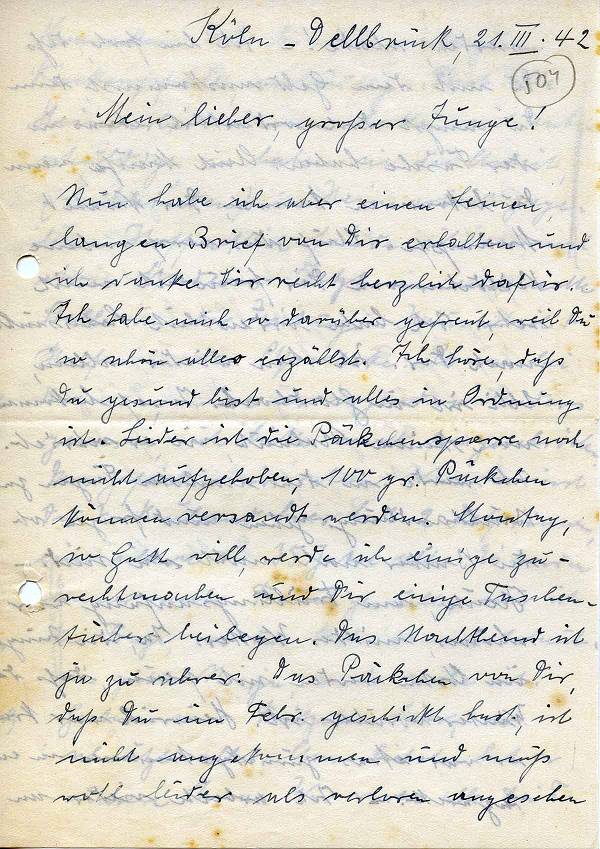 Köln - Dellbrück, 21. III. 42
504
Mein lieber, großer Junge!
Nun habe ich aber einen feinen,
langen Brief von Dir erhalten und
ich danke Dir recht herzlich dafür.
Ich habe mich so darüber gefreut, weil Du
so schön alles erzällst. Ich höre, daß
Du gesund bist und alles in Ordnung
ist. Leider ist die Päckchensperre noch
nicht aufgehoben, 100 gr. Päckchen
können versandt werden. Montag,
so Gott will, werde ich einige zu-
rechtmachen und Dir einige Taschen-
tücher beilegen. Das Nachthemd ist
ja zu schwer. Das Päckchen von Dir,
daß Du im Febr. geschickt hast, ist
nicht angekommen und muß
wohl leider als verloren angesehen